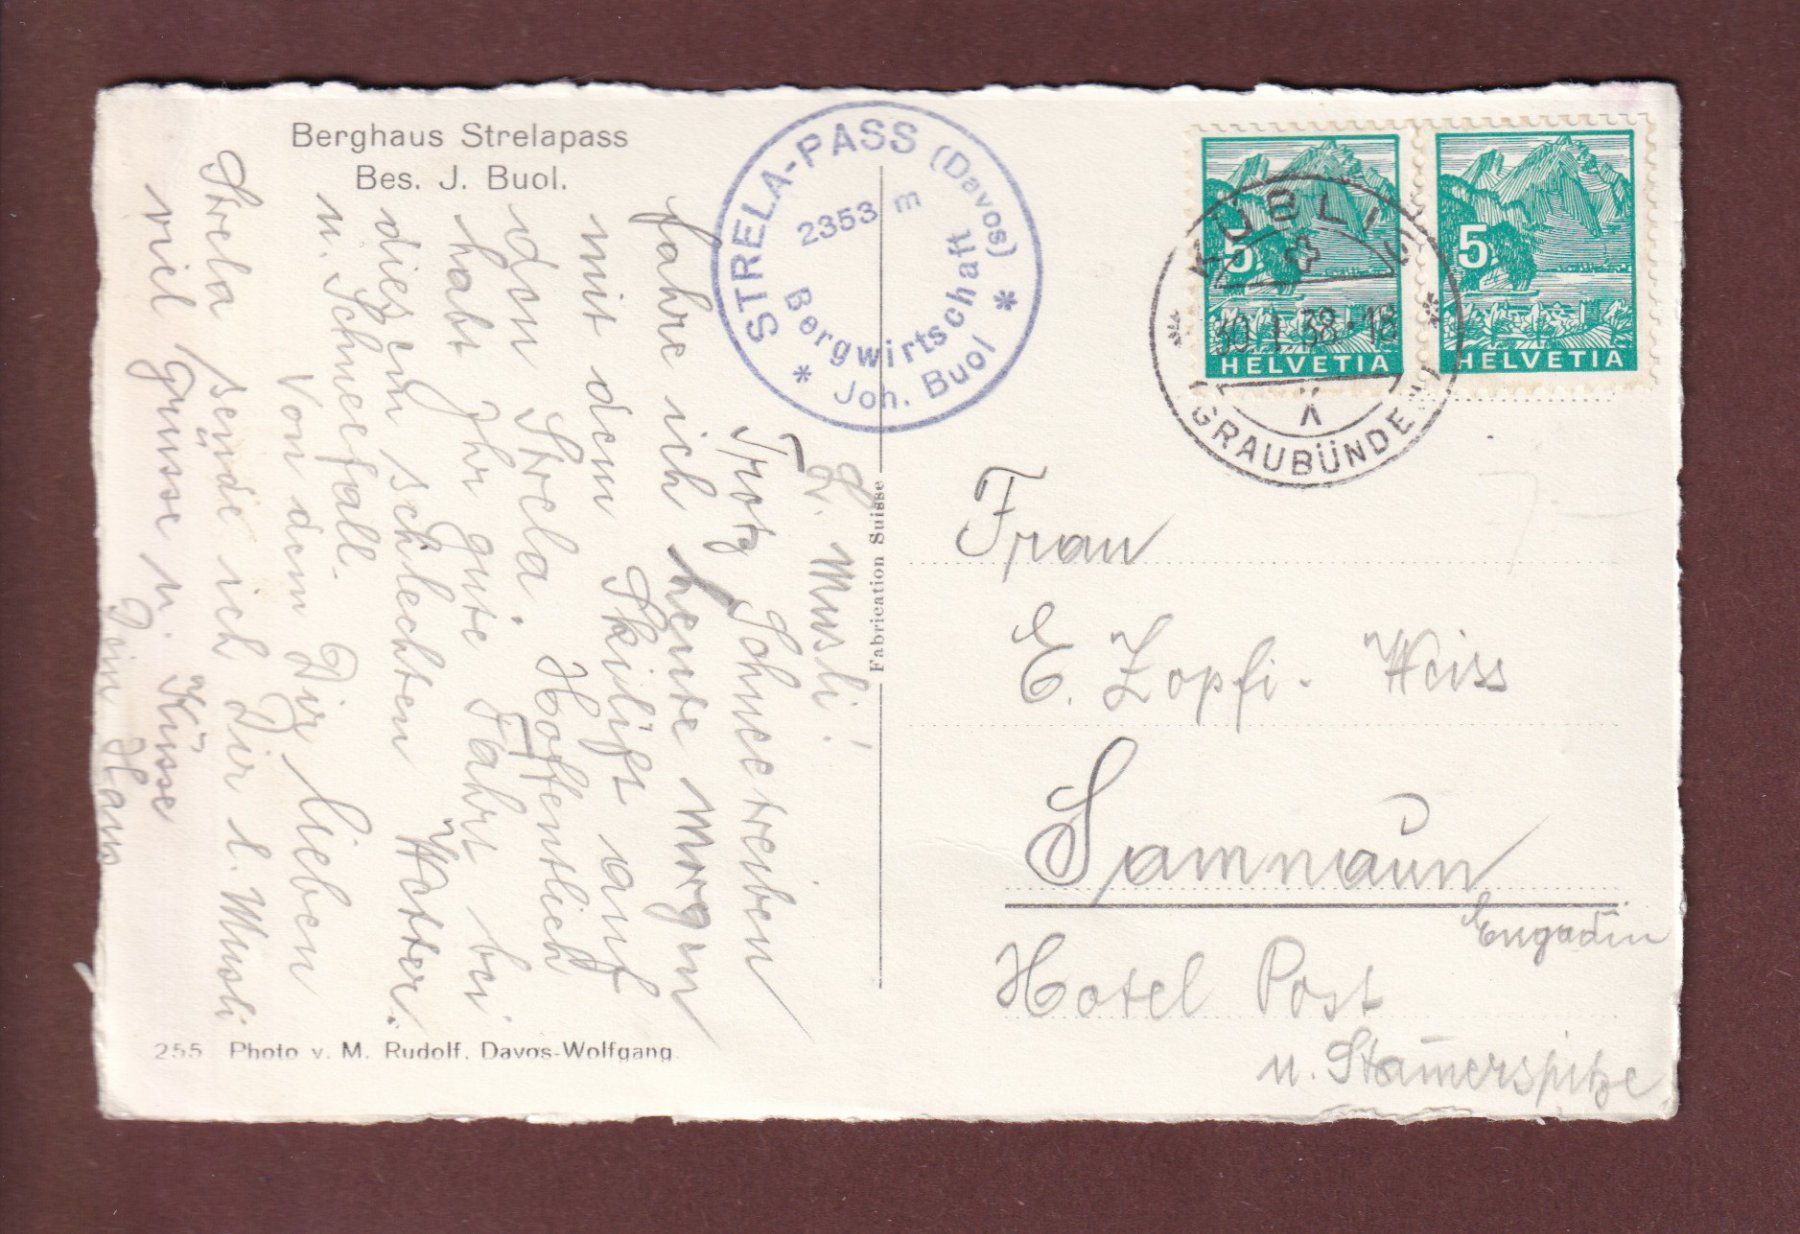 Berghaus Strelapass
Bes. J. Buol.
STRELA-PASS (Davos)
2353 m
Bergwirtschaft
* Joh. Buol *
5
HELVETIA
5
HELVETIA
KÜBLIS
30.I.38.-18
(GRAUBÜNDEN)
L. Musli!
Trotz Schneetreiben
fahre ich heute morgen
mit dem Skilift auf
den Strela. Hoffentlich
habt Ihr gute Fahrt bei
diesem schlechten Wetter
u. Schneefall.
Von dem Dir lieben
Strela sende ich Dir l. Musli
viel Grüsse u. Küsse
Dein Hans
Fabrication Suisse
Frau
E. Zopfi - Weiss
Samnaun
Engadin
Hotel Post
u. Stamerspitze
255 Photo v. M. Rudolf. Davos-Wolfgang